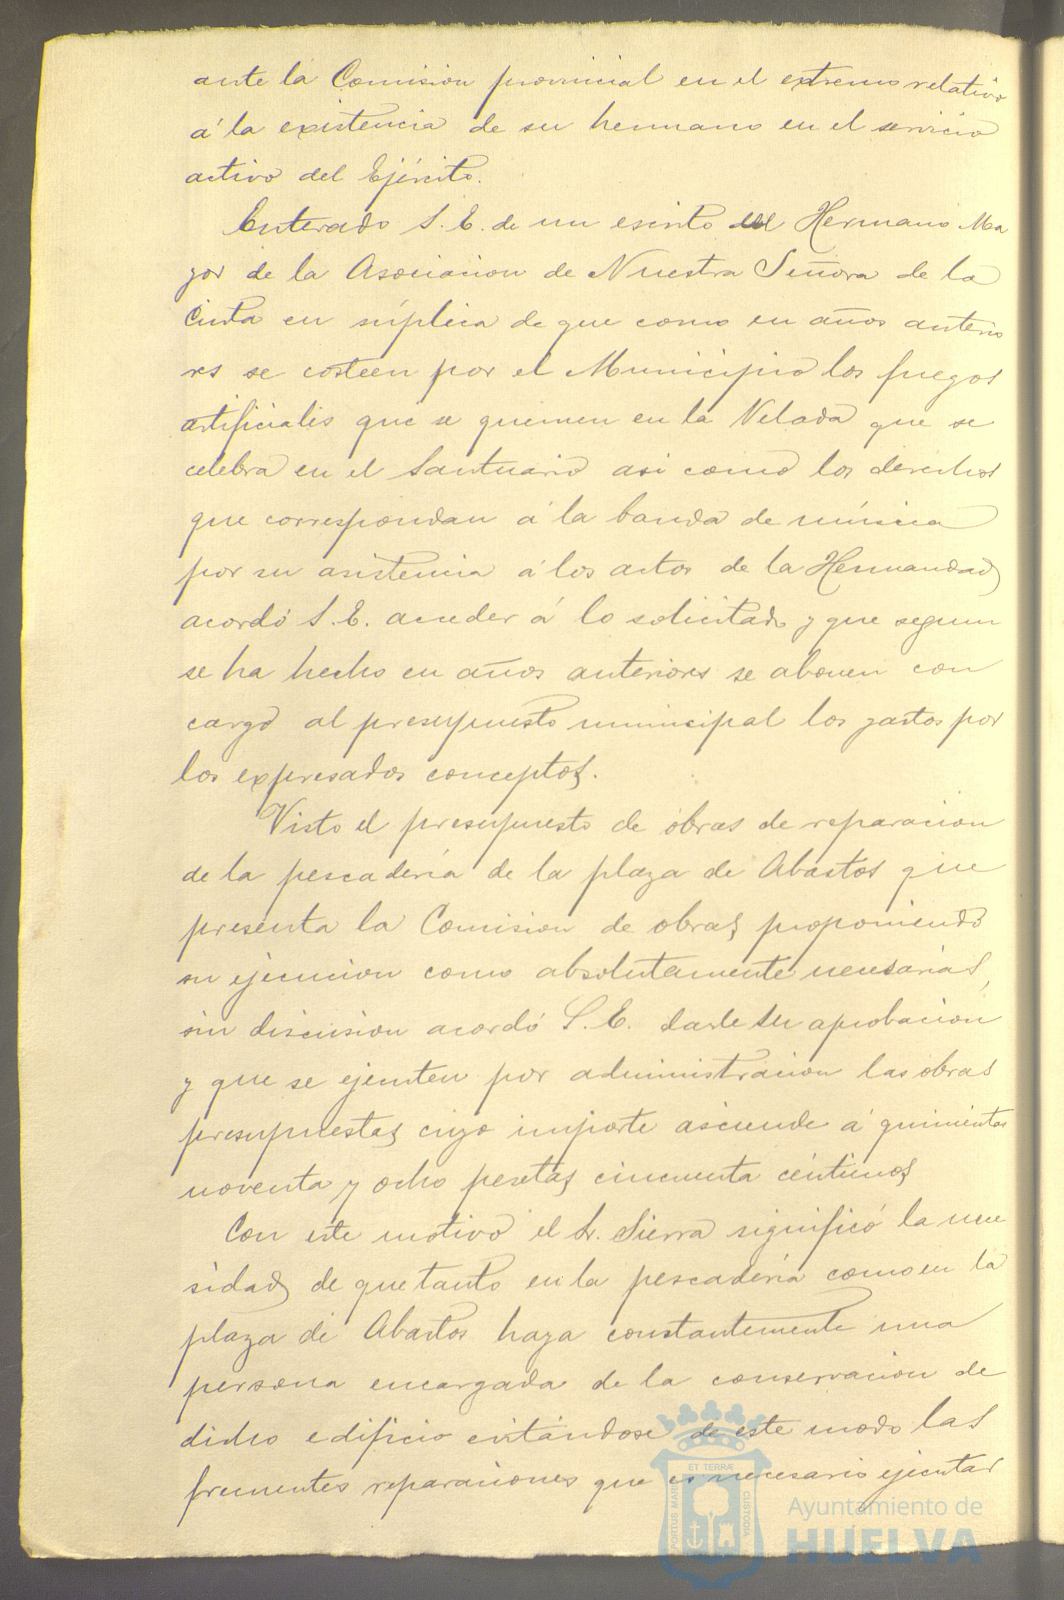 ante la Comision provincial en el extremo relativo
á la existencia de su hermano en el servicio
activo del Ejército.
Enterado S. E. de un escrito del Hermano Ma
yor de la Asociacion de Nuestra Señora de la
Cinta en súplica de que como en años anterio
res se costeen por el Municipio los fuegos
artificiales que se quemen en la Velada que se
celebra en el Santuario asi como los derechos
que correspondan á la banda de música
por su asistencia á los actos de la Hermandad
acordó S. E. acceder á lo solicitado y que segun
se ha hecho en años anteriores se abonen con
cargo al presupuesto municipal los gastos por
los expresados conceptos.
Visto el presupuesto de obras de reparacion
de la pescadería de la plaza de Abastos que
presenta la Comision de obras, proponiendo
su ejecucion como absolutamente necesarias,
sin discusion acordó S. E. darle su aprobacion
y que se ejecuten por administracion las obras
presupuestas cuyo importe asciende á quinientas
noventa y ocho pesetas cincuenta céntimos
Con este motivo el Sr. Sierra significó la nece
sidad de que tanto en la pescadería como en la
plaza de Abastos haya constantemente una
persona encargada de la conservacion de
dicho edificio evitándose de este modo las
frecuentes reparaciones que es necesario ejecutar
PORTUS MARIS ET TERRÆ CUSTODIA
Ayuntamiento de
HUELVA